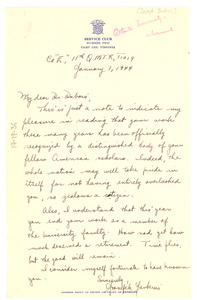 SERVICE CLUB
NUMBER TWO
CAMP LEE, VIRGINIA
Co K, 11th Q.M.T.R., T1019
January 1, 1944
My dear Dr. DuBois:
This is just a note to indicate my
pleasure in reading that your work
these many years has been officially
recognized by a distinguished body of your
fellow America's scholars. Indeed, the
whole nation may well take pride in
itself for not having entirely overlooked
you, so zealous a citizen.
Also, I understand that this year
you end your work as a member of
the University faculty. How sad yet how
much deserved a retirement. Time flies,
but the good will remain.
I consider myself fortunate to have known
you.
Sincerely,